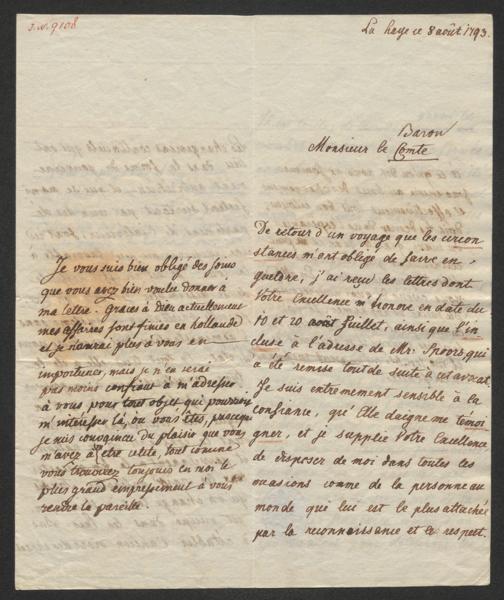 J.W. 9108
La haye ce 8 août 1793.
Baron
Monsieur le Comte
De retour d'un voyage que les circon
stances m'ont obligé de faire en
gueldre, j'ai reçu les lettres dont
Votre Excellence m'honore en date du
10 et 20 août Juillet, ainsi que l'in
cluse à l'adresse de Mr. Spoors, qui
a été remise tout de suite à cet avocat.
Je suis extremement sensible à la
confiance, qu'Elle daigne me témoi
gner, et je supplie Votre Excellence
de disposer de moi dans toutes les
occasions comme de la personne au
monde que lui est le plus attachée
par la reconnaissance et le respect.
Je vous suis bien obligé des soins
que vous avez bien voulu donner à
ma lettre. Graces à Dieu actuellement
mes affaires sont finies en hollande
et je n'aurai plus à vous en
importuner, mais je n'en serai
pas moins confiant à m'adresser
à vous pour tout objet qui pourroit
m'intéresser là, où vous êtes, puisque
je suis convaincu du plaisir que vous
m'avez à être utile, tout comme
vous trouverez toujours en moi le
plus grand empressement à vous
rendre la pareille.